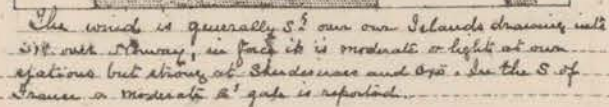 The wind is generally S'ly over our Islands drawing into
SW over Norway, in force it is moderate or light at our
stations but strong at Skudesnaes and Oxö. In the S of
France a moderate E' gale is reported.